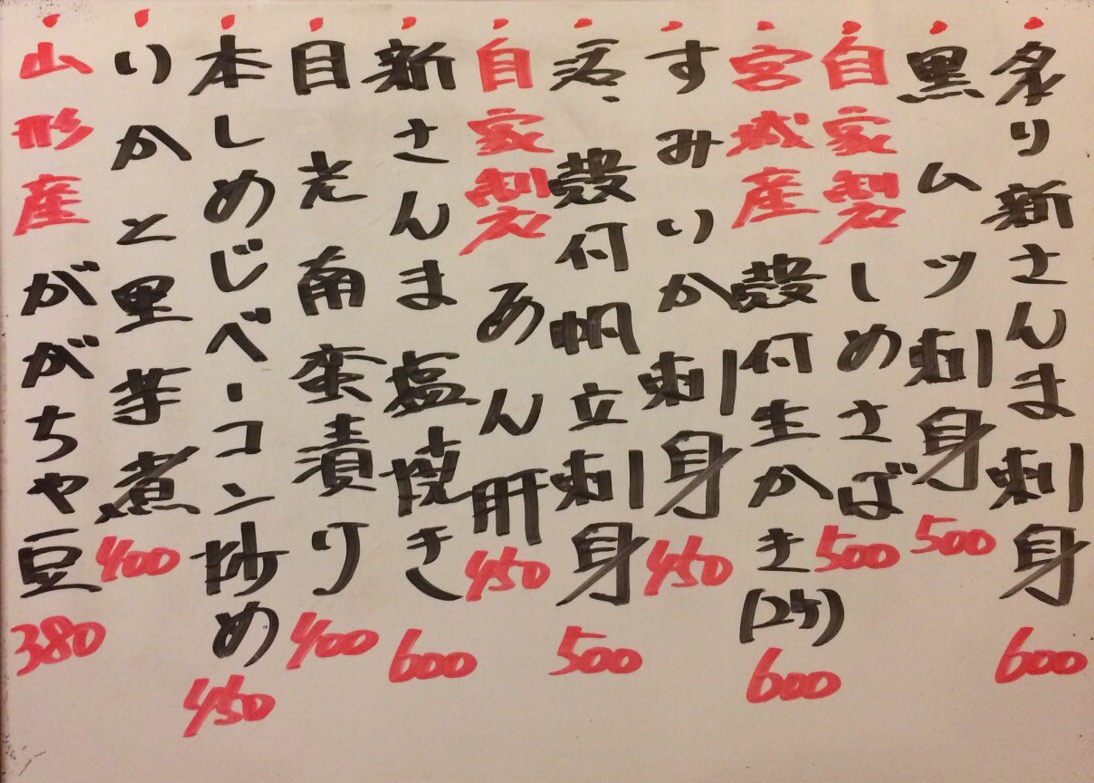 炙り新さんま刺身 600
黒ムツ刺身 500
自家製 しめさば 500
宮城産 殻付生かき(2ケ) 600
すみいか刺身 450
活、殻付帆立刺身 500
自家製 あん肝 450
新さんま塩焼き 600
目光南蛮漬け 400
本しめじベーコン炒め 450
いかと里芋煮 400
山形産 だだちゃ豆 380